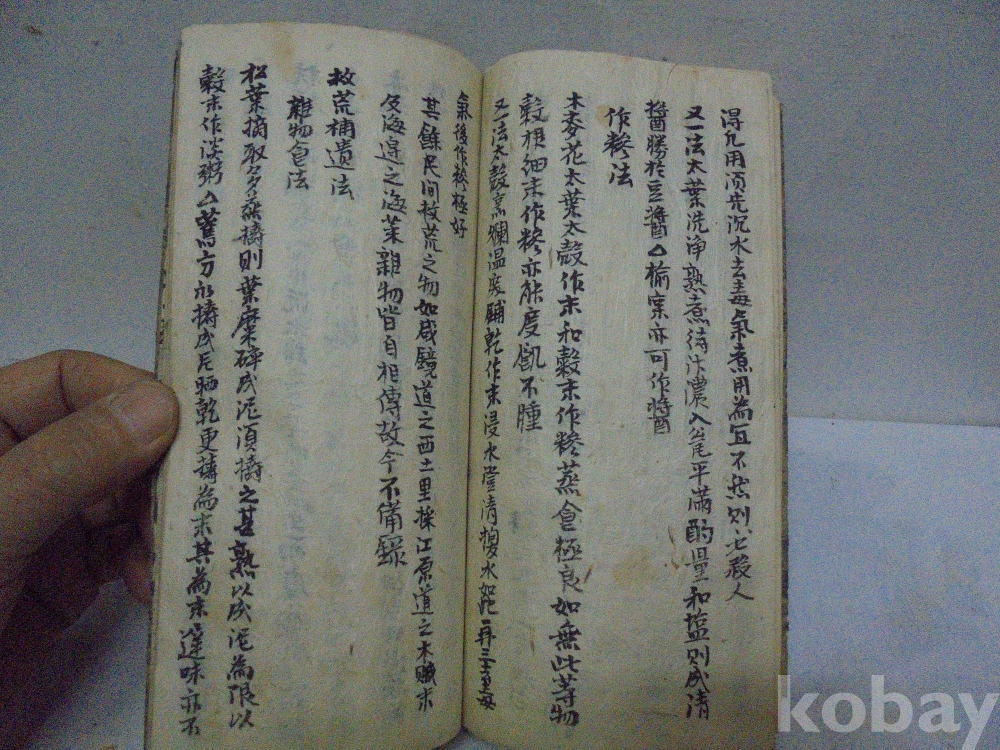 淂凡用須先沉水去毒氣煮用為宜不然則必殺人
又一法太葉洗淨熟煮待汁濃入瓮平滿酌量和塩則成清
醬勝於豆醬△榆案亦可作醬
作糝法
木麥花太葉太殼作末和穀末作糝蒸食極良如無此等物
穀根細末作糝亦能度飢不腫
又一法太殼烹爛溫突鋪乾作末浸水澄清換水如此再三去毒
氣後作糝極好
其餘民間救荒之物如咸鏡道之西土里採江原道之木賊末
及海邊之海菜雜物皆自相傳故今不備錄
救荒補遺法
雜物食法
松葉摘取多多蒸擣則葉糜碎成泥須擣之甚熟以成泥為限以
穀末作淡粥△舊方水擣成片晒乾更擣為末其為末澁味亦不
kobay